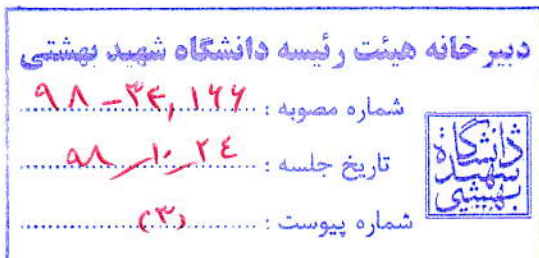 دبیرخانه هیئت رئیسه دانشگاه شهید بهشتی
شماره مصوبه : ۹۸-۳۴,۱۶۶
تاریخ جلسه : ۹۸/۱۰/۲۴
شماره پیوست : (۳)
دانشگاه
شهید
بهشتی